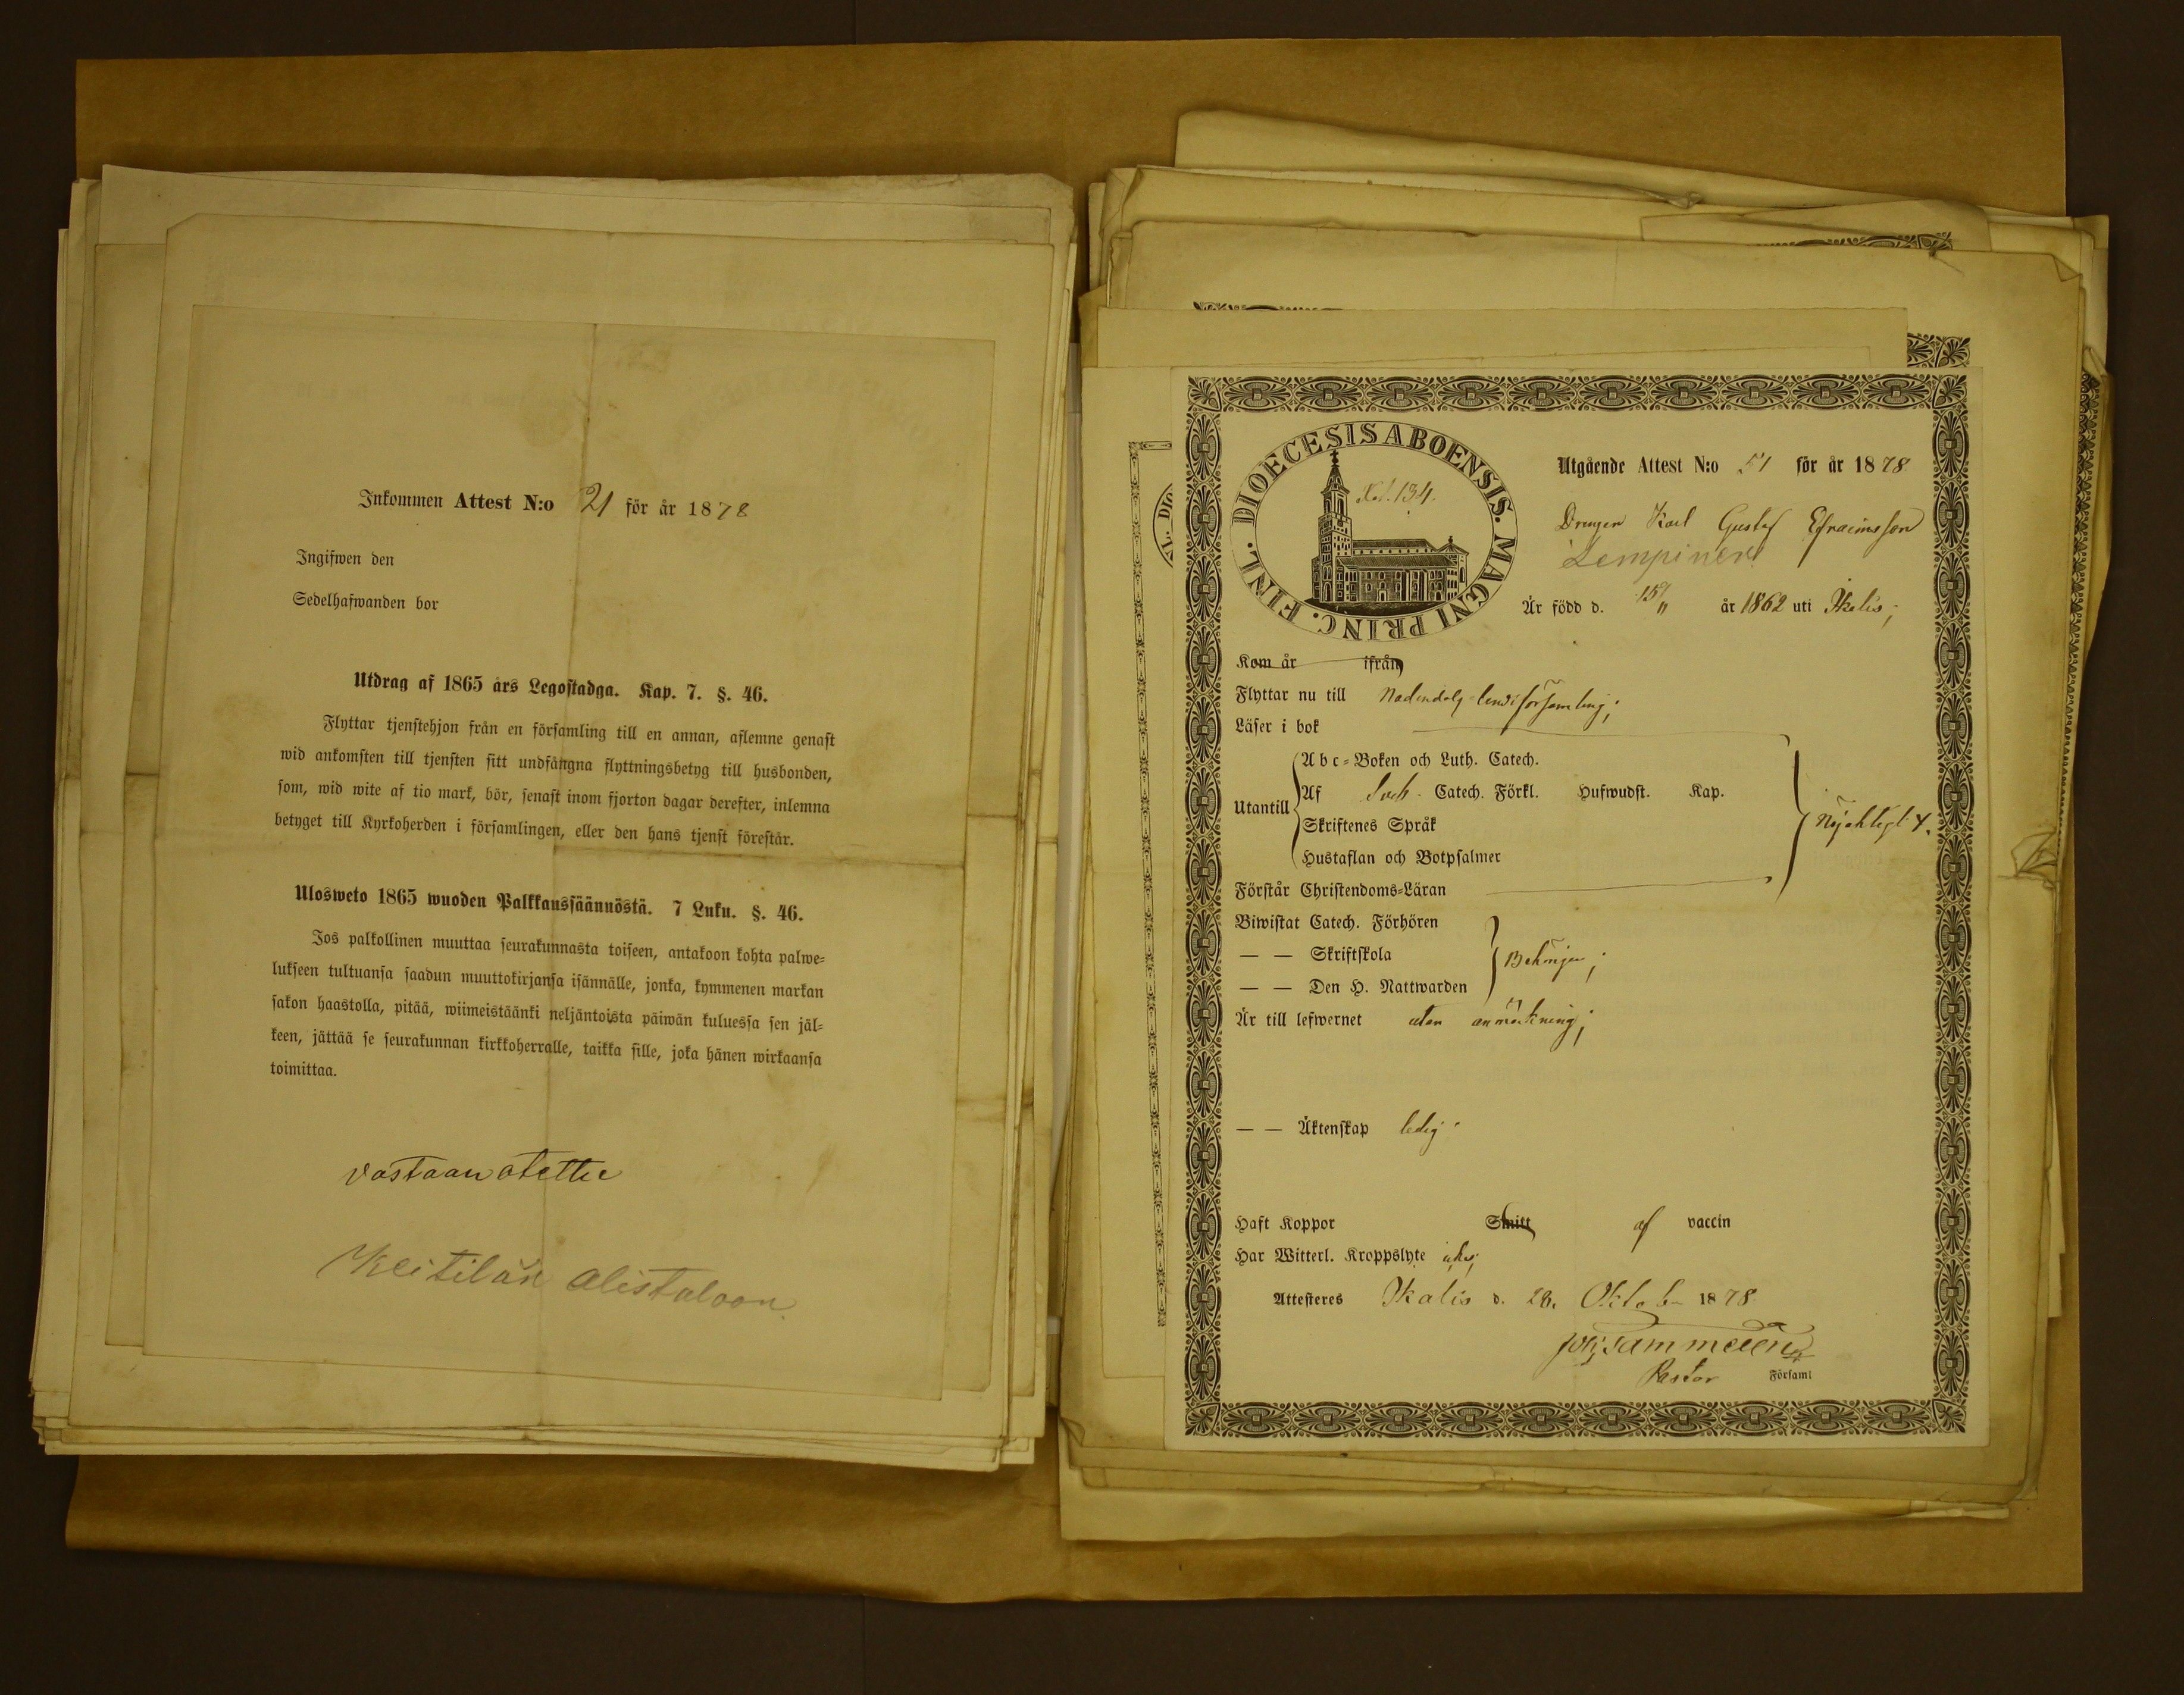 Inkommen Attest N:o 21 för år 1878
Ingifwen den
Sedelhafwanden bor
Utdrag af 1865 års Legostadga. Kap. 7. §. 46.
Flyttar tjenstehjon från en församling till en annan, aflemne genast
wid ankomsten till tjensten sitt undfångna flyttningsbetyg till husbonden,
som, wid wite af tio mark, bör, senast inom fjorton dagar derefter, inlemna
betyget till Kyrkoherden i församlingen, eller den hans tjenst förestår.
Ulosweto 1865 wuoden Palkkaussäännöstä. 7 Luku. §. 46.
Jos palkollinen muuttaa seurakunnasta toiseen, antakoon kohta palwe=
lukseen tultuansa saadun muuttokirjansa isännälle, jonka, kymmenen markan
sakon haastolla, pitää, wiimeistäänki neljäntoista päiwän kuluessa sen jäl=
keen, jättää se seurakunnan kirkkoherralle, taikka sille, joka hänen wirkaansa
toimittaa.
vastaan otettu
Keitilän Alistaloon
L. DIO
DIOECESIS ABOENSIS. MAGNI PRINC. FINL.
Fol. 134.
Utgående Attest N:o 51 för år 1878
Drengen Karl Gustaf Efraimsson
Lempinen
Är född d. 15/11 år 1862 uti Ikalis;
Kom år ifrån
Flyttar nu till Nådendals landsförsamling;
Läser i bok
Utantill
Abc=Boken och Luth. Catech.
Af Sveb. Catech. Förkl. Hufwudst. Kap.
Skriftenes Språk
Hustaflan och Botpsalmer
Nöjaktigt
Förstår Christendoms=Läran
Biwistat Catech. Förhören
— — Skriftskola
— — Den H. Nattwarden
Behörigen;
Är till lefwernet utan anmärkning;
— — Äktenskap ledig
Haft Koppor Smitt af vaccin
Har Witterl. Kroppslyte icke;
Attesteres Ikalis d. 28. Oktober 1878
Pastor Församl